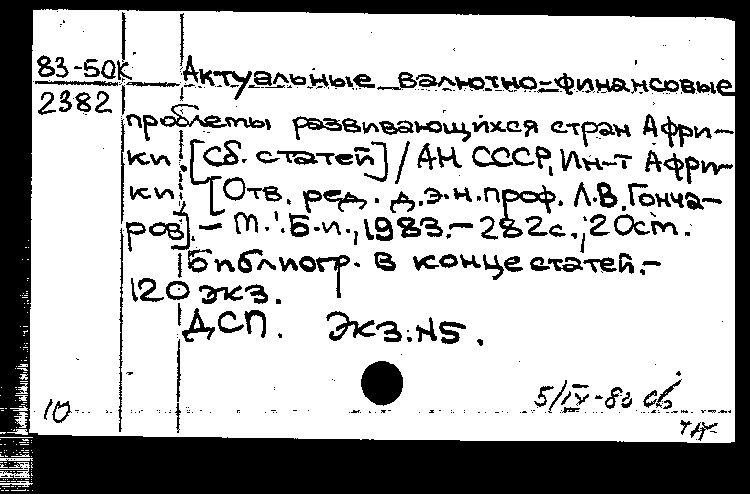 83-50К Актуальные валютно-финансовые
2382
проблемы развивающихся стран Афри-
ки. [Сб. статей] / АН СССР, Ин-т Афри-
ки [Отв. ред. д.э.н. проф. Л.В. Гонча-
ров]. - М.: Б.и., 1983. - 282с.; 20см.
Библиогр. в конце статей. -
120 экз.
ДСП. Экз. N5.
5/IX-83
10